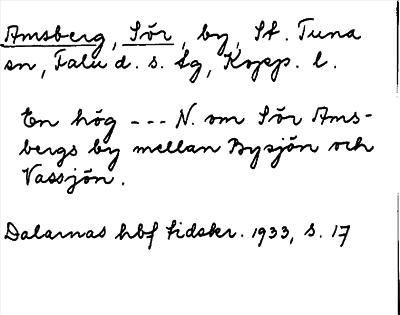 Amsberg, Sör, by, St. Tuna
sn, Falu d. s. fg, Kopp. l.
En hög --- N. om Sör Ams-
bergs by mellan Bysjön och
Vassjön.
Dalarnas hbf tidskr. 1933, s. 17